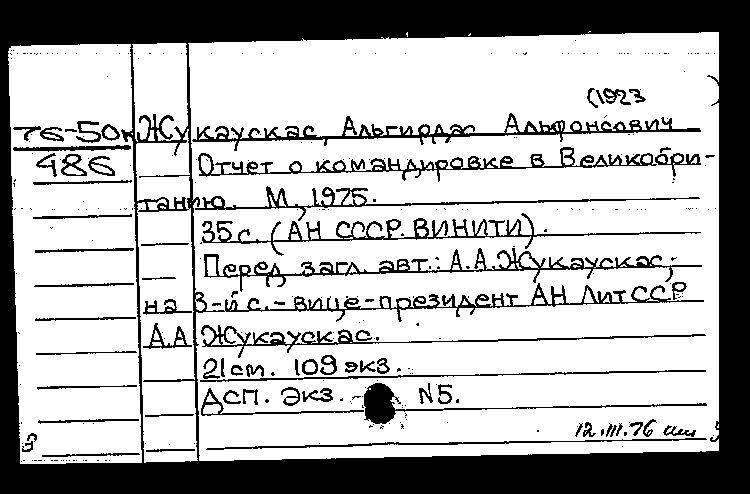 (1923 )
76-50к Жукаускас, Альгирдас Альфонсович
486 Отчет о командировке в Великобри-
танию. М., 1975.
35 с. (АН СССР. ВИНИТИ).
Перед загл. авт.: А.А.Жукаускас;
на 3-й с. - вице-президент АН ЛитССР
А.А Жукаускас.
21 см. 109 экз.
ДСП. Экз. - N5.
12.III.76
З